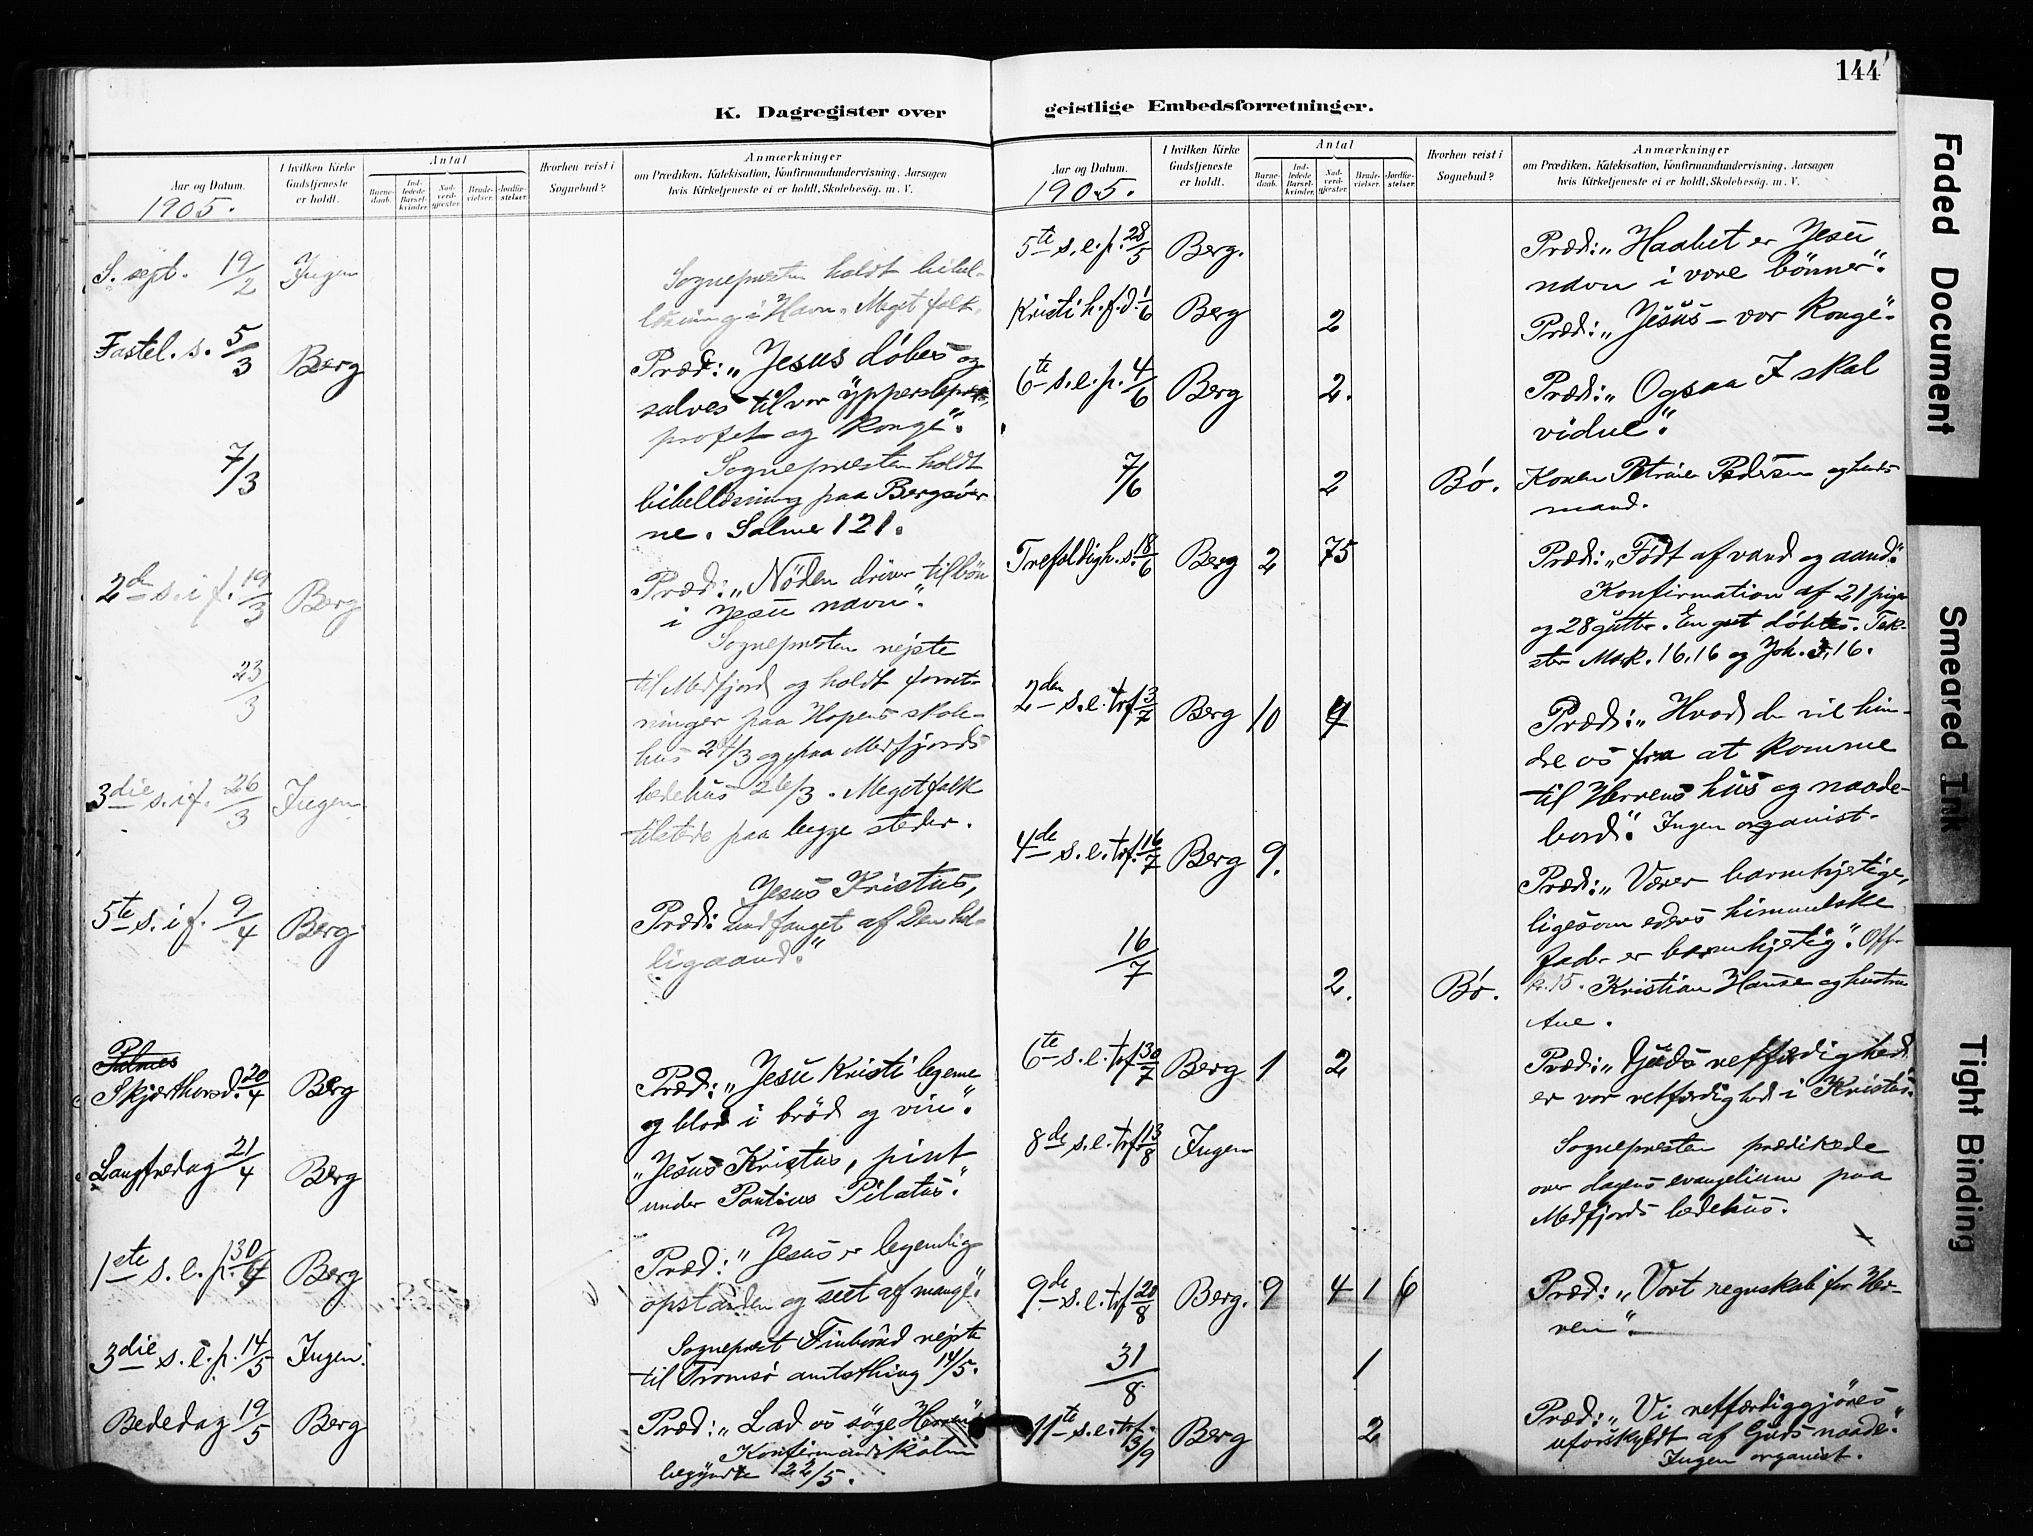 144
K. Dagregister over
geistlige Embedsforretninger.
Aar og Datum.
1905.
I hvilken Kirke
Gudstjeneste
er holdt.
Antal
Barne-
daab.
Ind-
ledede
Barsel-
kvinder.
Nad-
verd-
gjester.
Brude-
vielser.
Jordfæ-
stelser.
Hvorhen reist i
Sognebud?
Anmærkninger
om Prædiken, Katekisation, Konfirmandundervisning. Aarsagen
hvis Kirketjeneste ei er holdt. Skolebesøg. m. V.
S. sept. 19/2 Ingen
Sognepresten holdt bibel-
læsning i Havn. Meget folk.
Fastel. s. 5/3 Berg
Præd: „Jesus döbes og
salves til vor ypperstepræst,
profet og konge“.
7/3
Sognepresten holdt
bibellæsning paa Bergsøer-
ne. Salme 121.
2den s. i f. 19/3 Berg
Præd: „Nöden driver til bön
i Jesu navn“.
23/3
Sognepresten rejste
til Medfjord og holdt forret-
ninger paa Hopens skole-
hus 24/3 og paa Medfjords
bedehus 26/3. Meget folk
tilstede paa begge steder.
3die s. i f. 26/3 Ingen
5te s. i f. 9/4 Berg
Præd: Jesus Kristus,
undfanget af Den hel-
ligaand“.
Skjærthorsd. 20/4 Berg
Præd: „Jesu Kristi legeme
og blod i bröd og vin“.
Langfredag 21/4 Berg
„Jesus Kristus, pint
under Pontius Pilatus“.
1ste s. e. p. 30/4 Berg
Præd: „Jesus er legemlig
opstanden og seet af mange“.
3die s. e. p. 14/5 Ingen.
Sogneprest Finbörud rejste
til Tromsø amtsthing 14/5.
Bededag 19/5 Berg
Præd: „Lad os søge Herren“
Konfirmandskolen
begyndte 22/5.
Aar og Datum.
1905.
I hvilken Kirke
Gudstjeneste
er holdt.
Antal
Barne-
daab.
Ind-
ledede
Barsel-
kvinder.
Nad-
verd-
gjester.
Brude-
vielser.
Jordfæ-
stelser.
Hvorhen reist i
Sognebud?
Anmærkninger
om Prædiken, Katekisation, Konfirmandundervisning. Aarsagen
hvis Kirketjeneste ei er holdt. Skolebesøg. m. V.
5te s. e. p. 28/5 Berg.
Præd: „Haabet er Jesu
navn i vore bönner“.
Kristi h. f. d. 1/6 Berg 2
Præd: „Jesus – vor konge“.
6te s. e. p. 4/6 Berg 2.
Præd: „Ogsaa I skal
vidne“.
7/6 2 Bø.
Konen Petrine Pedersen og hendes
mand.
Trefoldigh. s. 18/6 Berg 2 75
Præd: „Födt af vand og aand“.
Konfirmation af 21 piger
og 28 gutter. En gut döbtes. Tek-
ster Mark. 16.16 og Joh. 3,16.
2den s. e. trf. 3/7 Berg 10 4
Præd: „Hvad der vil hin-
dre os fra at komme
til Herrens hus og naade-
bord“. Ingen organist.
4de s. e. trf. 16/7 Berg 9.
Præd: „Værer barmhjertige,
ligesom eders himmelske
fader er barmhjertig“. Off.
k. 15.
16/7 2. Bø.
Kristian Hansen og hustru
Ane.
6te s. e. trf. 30/7 Berg 1 2
Præd: „Guds retfærdighed
er vor retfærdighed i Kristus“.
8de s. e. trf. 13/8 Ingen
Sognepresten prædikede
over dagens evangelium paa
Medfjords bedehus.
9de s. e. trf. 20/8 Berg. 9 4 1 6
Præd: „Vort regnskab for Her-
ren“.
31/8 1
11te s. e. trf. 3/9 Berg 2
Præd: „Vi retfærdiggjöres
uforskyldt af Guds naade“.
Ingen organist.
Faded Document
Smeared Ink
Tight Binding